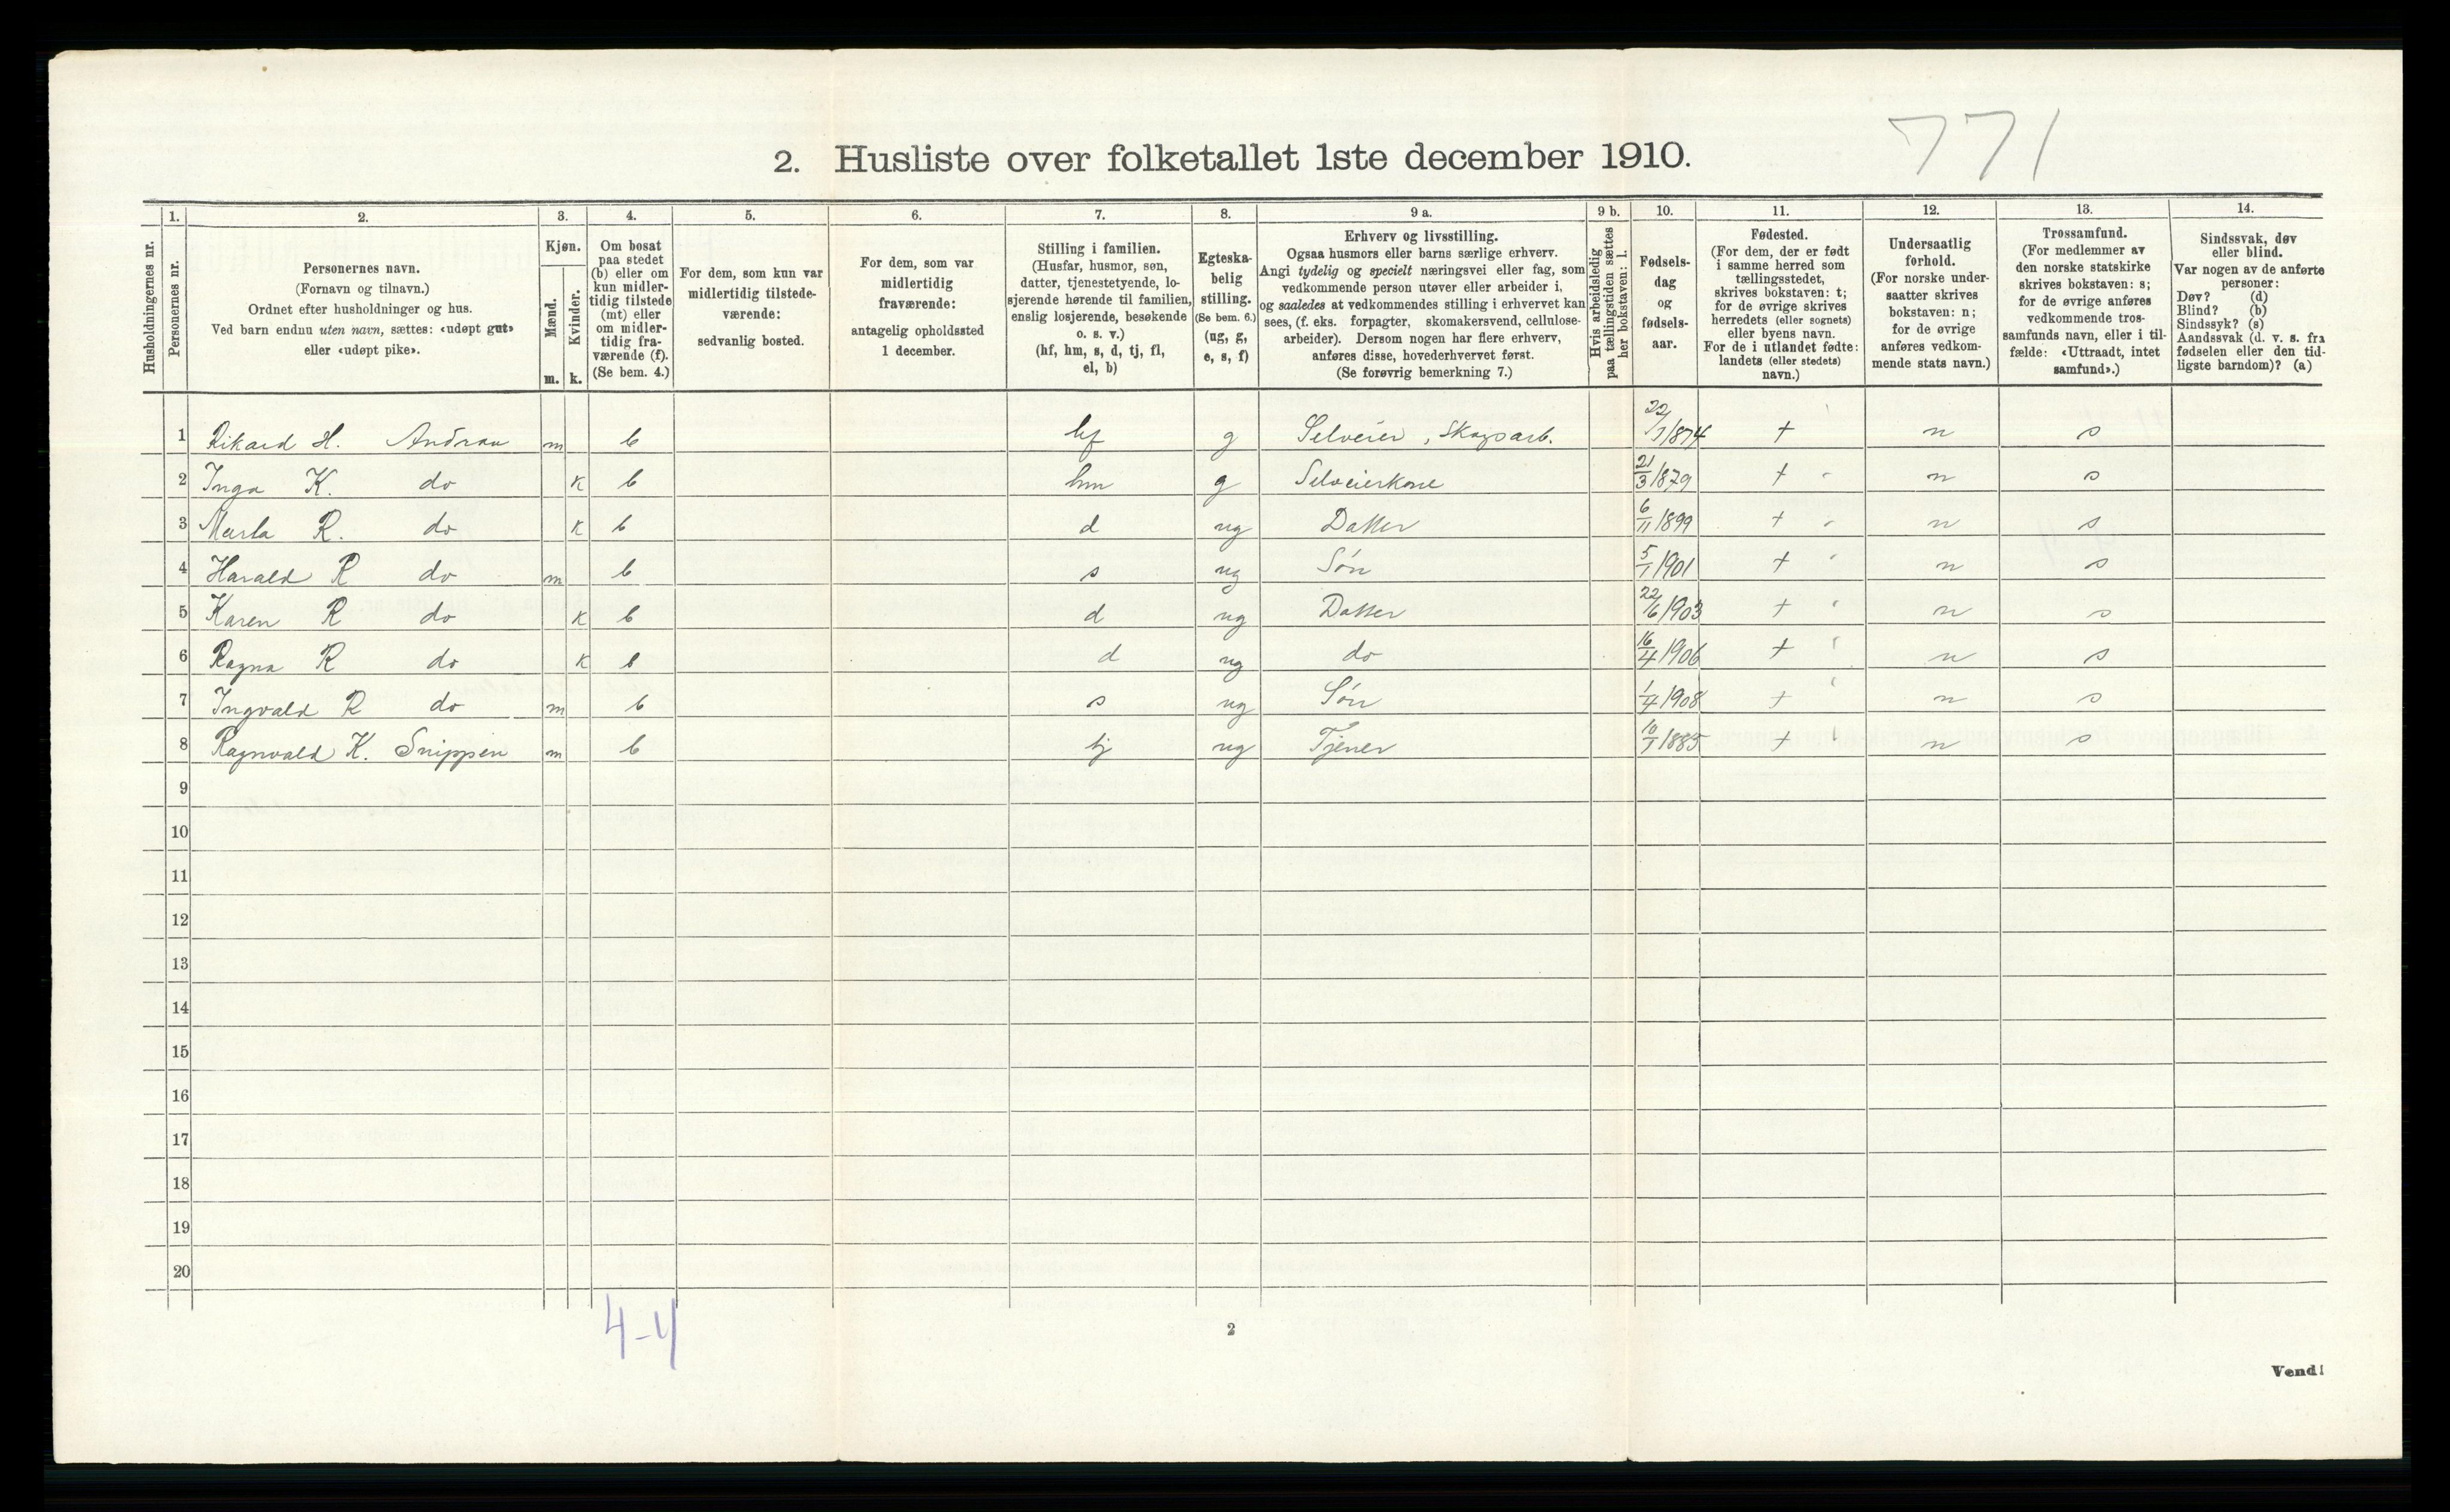 771
2. Husliste over folketallet 1ste december 1910.
Husholdningernes nr.
1.
Personernes nr.
2.
Personernes navn.
(Fornavn og tilnavn.)
Ordnet efter husholdninger og hus.
Ved barn endnu uten navn, sættes: «udøpt gut»
eller «udøpt pike».
3.
Kjøn.
Mænd.
m.
Kvinder.
k.
4.
Om bosat
paa stedet
(b) eller om
kun midler-
tidig tilstede
(mt) eller
om midler-
tidig fra-
værende (f).
(Se bem. 4.)
5.
For dem, som kun var
midlertidig tilstede-
værende:
sedvanlig bosted.
6.
For dem, som var
midlertidig
fraværende:
antagelig opholdssted
1 december.
7.
Stilling i familien.
(Husfar, husmor, søn,
datter, tjenestetyende, lo-
sjerende hørende til familien,
enslig losjerende, besøkende
o. s. v.)
(hf, hm, s, d, tj, fl,
el, b)
8.
Egteska-
belig
stilling.
(Se bem. 6.)
(ug, g,
e, s, f)
9 a.
Erhverv og livsstilling.
Ogsaa husmors eller barns særlige erhverv.
Angi tydelig og specielt næringsvei eller fag, som
vedkommende person utøver eller arbeider i,
og saaledes at vedkommendes stilling i erhvervet kan
sees, (f. eks. forpagter, skomakersvend, cellulose-
arbeider). Dersom nogen har flere erhverv,
anføres disse, hovederhvervet først.
(Se forøvrig bemerkning 7.)
9 b.
Hvis arbeidsledig
paa tællingstiden sættes
her bokstaven: l.
10.
Fødsels-
dag
og
fødsels-
aar.
11.
Fødested.
(For dem, der er født
i samme herred som
tællingsstedet,
skrives bokstaven: t;
for de øvrige skrives
herredets (eller sognets)
eller byens navn.
For de i utlandet fødte:
landets (eller stedets)
navn.)
12.
Undersaatlig
forhold.
(For norske under-
saatter skrives
bokstaven: n;
for de øvrige
anføres vedkom-
mende stats navn.)
13.
Trossamfund.
(For medlemmer av
den norske statskirke
skrives bokstaven: s;
for de øvrige anføres
vedkommende tros-
samfunds navn, eller i til-
fælde: «Uttraadt, intet
samfund».)
14.
Sindssvak, døv
eller blind.
Var nogen av de anførte
personer:
Døv? (d)
Blind? (b)
Sindssyk? (s)
Aandssvak (d. v. s. fra
fødselen eller den tid-
ligste barndom)? (a)
1 Rikard H. m b hf g Selveier, Skogsarb. 22/7 1874 t n s
2 Inga K. do k b hm g Selveierkone 21/3 1879 t n s
3 Marta R. do k b d ug Datter 6/11 1899 t n s
4 Harald R do m b s ug Søn 5/1 1901 t n s
5 Karen R do k b d ug Datter 22/6 1903 t n s
6 Ragna R do k b d ug do 16/4 1906 t n s
7 Ingvald R do m b s ug Søn 1/4 1908 t n s
8 Ragnvald K. Snippen m b tj ug Tjener 10/7 1885 t n s
9
10
11
12
13
14
15
16
17
18
19
20
4-4
2
Vend!